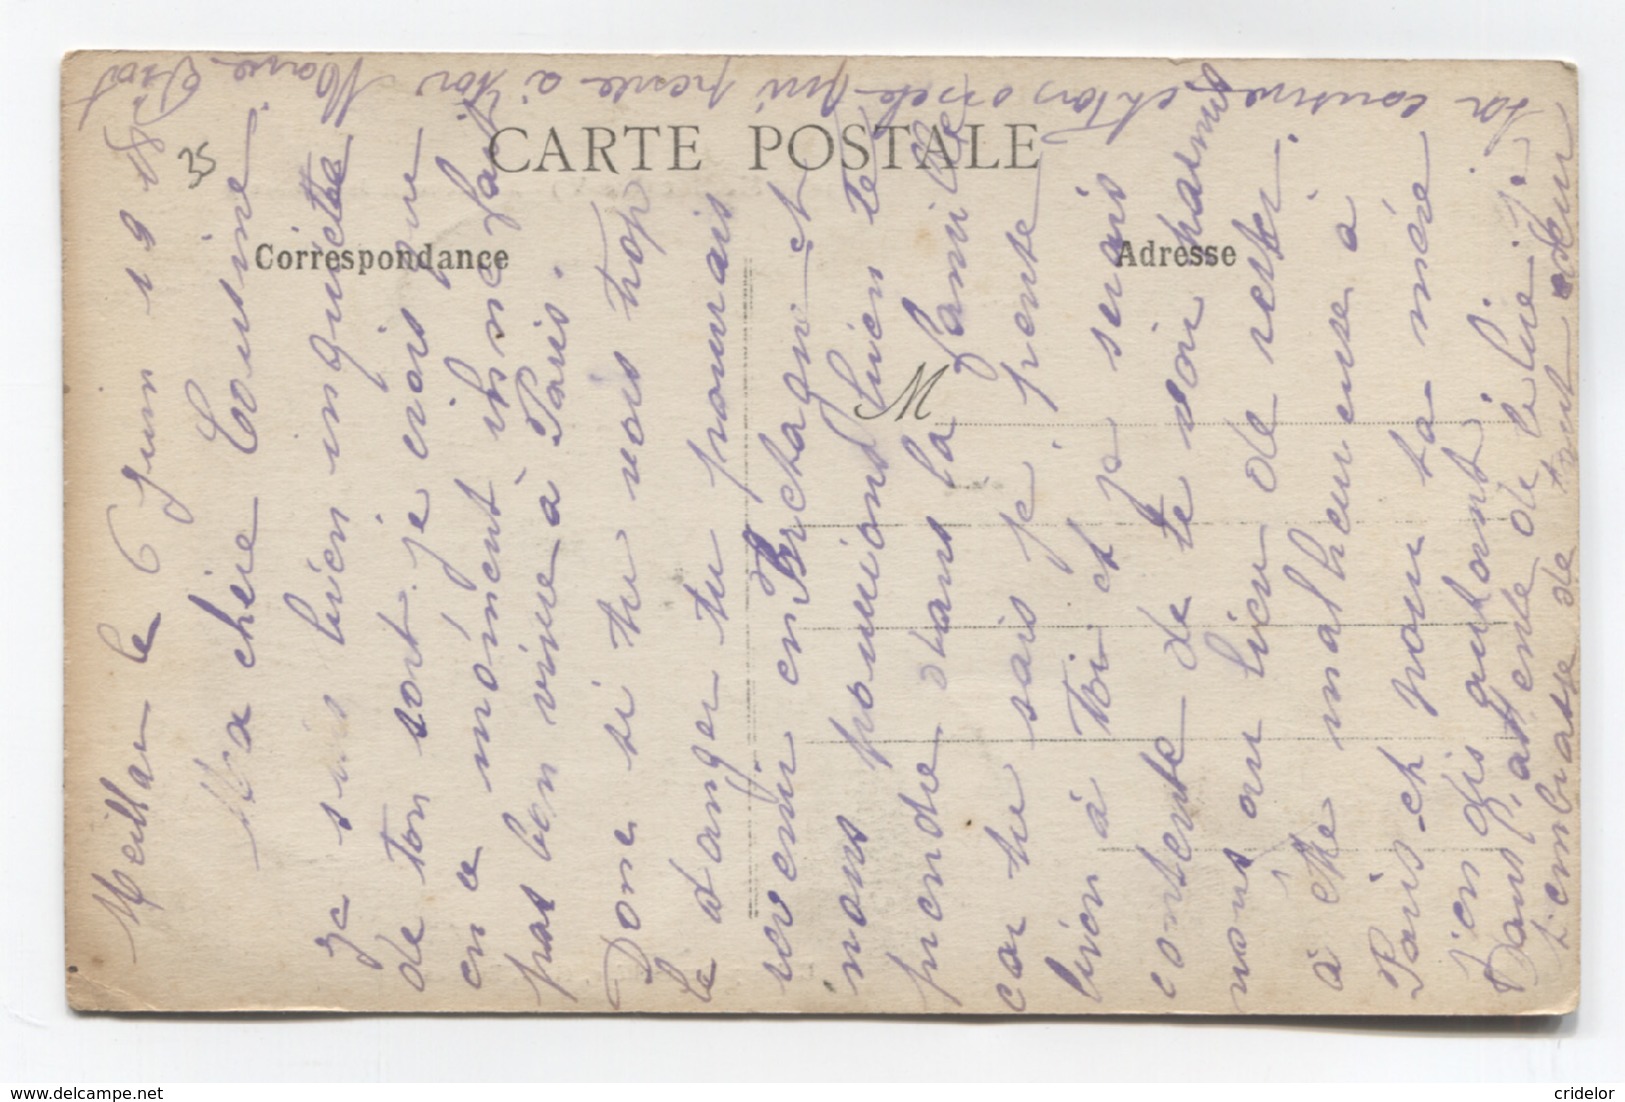 CARTE POSTALE
Correspondance
Adresse
M
35
Meillac le 6 juin 1918
Ma chère Cousine
je suis bien inquiète
de ton sort je crois que
en ce moment il ne fait
pas bon vivre à Paris.
Donc si tu vois trop
le danger tu pourrais
revenir en Bretagne et
nous pourrions bien te
prendre dans la famille
car tu sais je pense
bien à Toi et je serais
contente de te voir parmis
nous au lieu de rester
à être malheureuse à
Paris et pour ta mère
j'en dis autant.
Dans l'attente de te lire Je
t'embrasse de tout cœur
ta cousine et ton qui pense à toi Marie
www.delcampe.net
cridelor